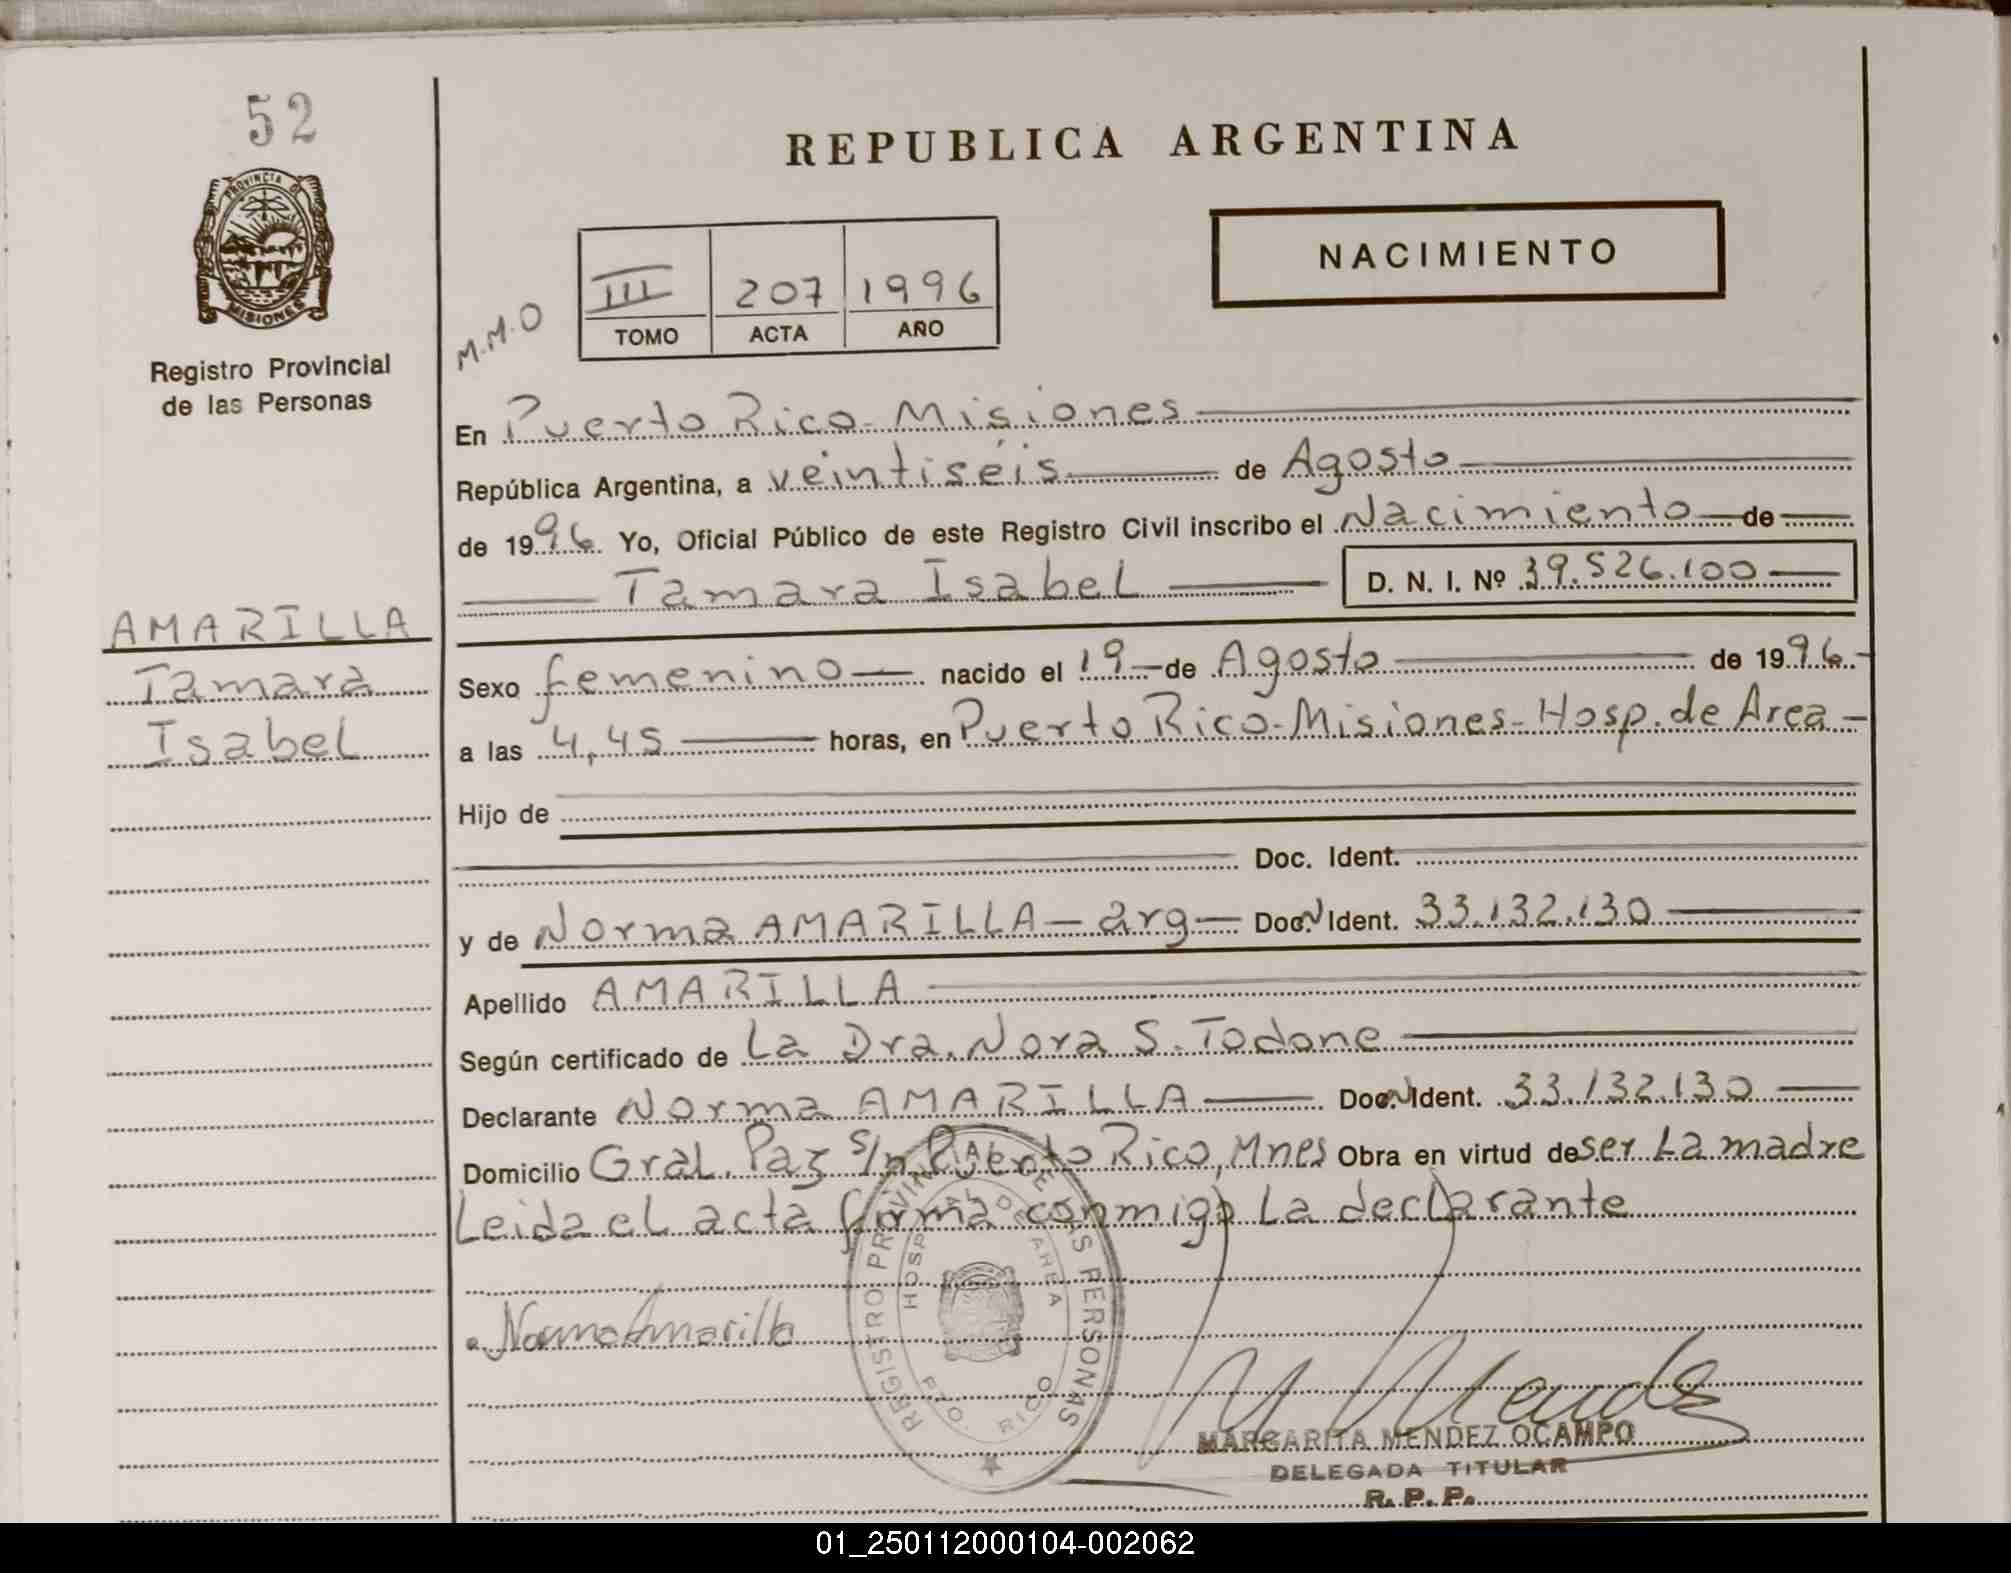 52
PROVINCIA DE
MISIONES
Registro Provincial
de las Personas
AMARILLA
Tamara
Isabel
REPUBLICA ARGENTINA
NACIMIENTO
M.M.O
III 207 1996
TOMO ACTA AÑO
En Puerto Rico - Misiones
República Argentina, a veintiséis de Agosto
de 1996 Yo, Oficial Público de este Registro Civil inscribo el Nacimiento de
Tamara Isabel D. N. I. Nº 39.526.100
Sexo femenino nacido el 19 de Agosto de 1996
a las 4,45 horas, en Puerto Rico - Misiones - Hosp. de Area -
Hijo de
Doc. Ident.
y de Norma AMARILLA - arg - Doc. Ident. 33.132.130
Apellido AMARILLA
Según certificado de La Dra. Nora S. Todone
Declarante Norma AMARILLA Doc. Ident. 33.132.130
Domicilio Gral. Paz s/n Puerto Rico, Mnes Obra en virtud de ser La madre
Leida el acta firma conmigo La declarante
Norma Amarilla
REGISTRO PROVINCIAL DE LAS PERSONAS
HOSPITAL DE AREA
PTO. RICO
M Mendez
MARGARITA MENDEZ OCAMPO
DELEGADA TITULAR
R. P. P.
01_250112000104-002062